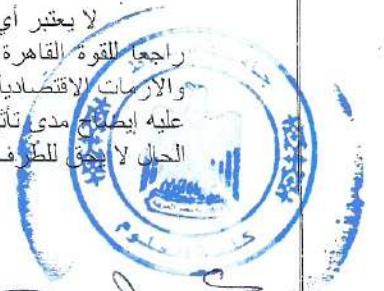 لا يعتبر أي
راجعا للقوة القاهرة
والازمات الاقتصادية
عليه إيضاح مدى تأث
الحال لا يحق للطرف
كلية العلوم